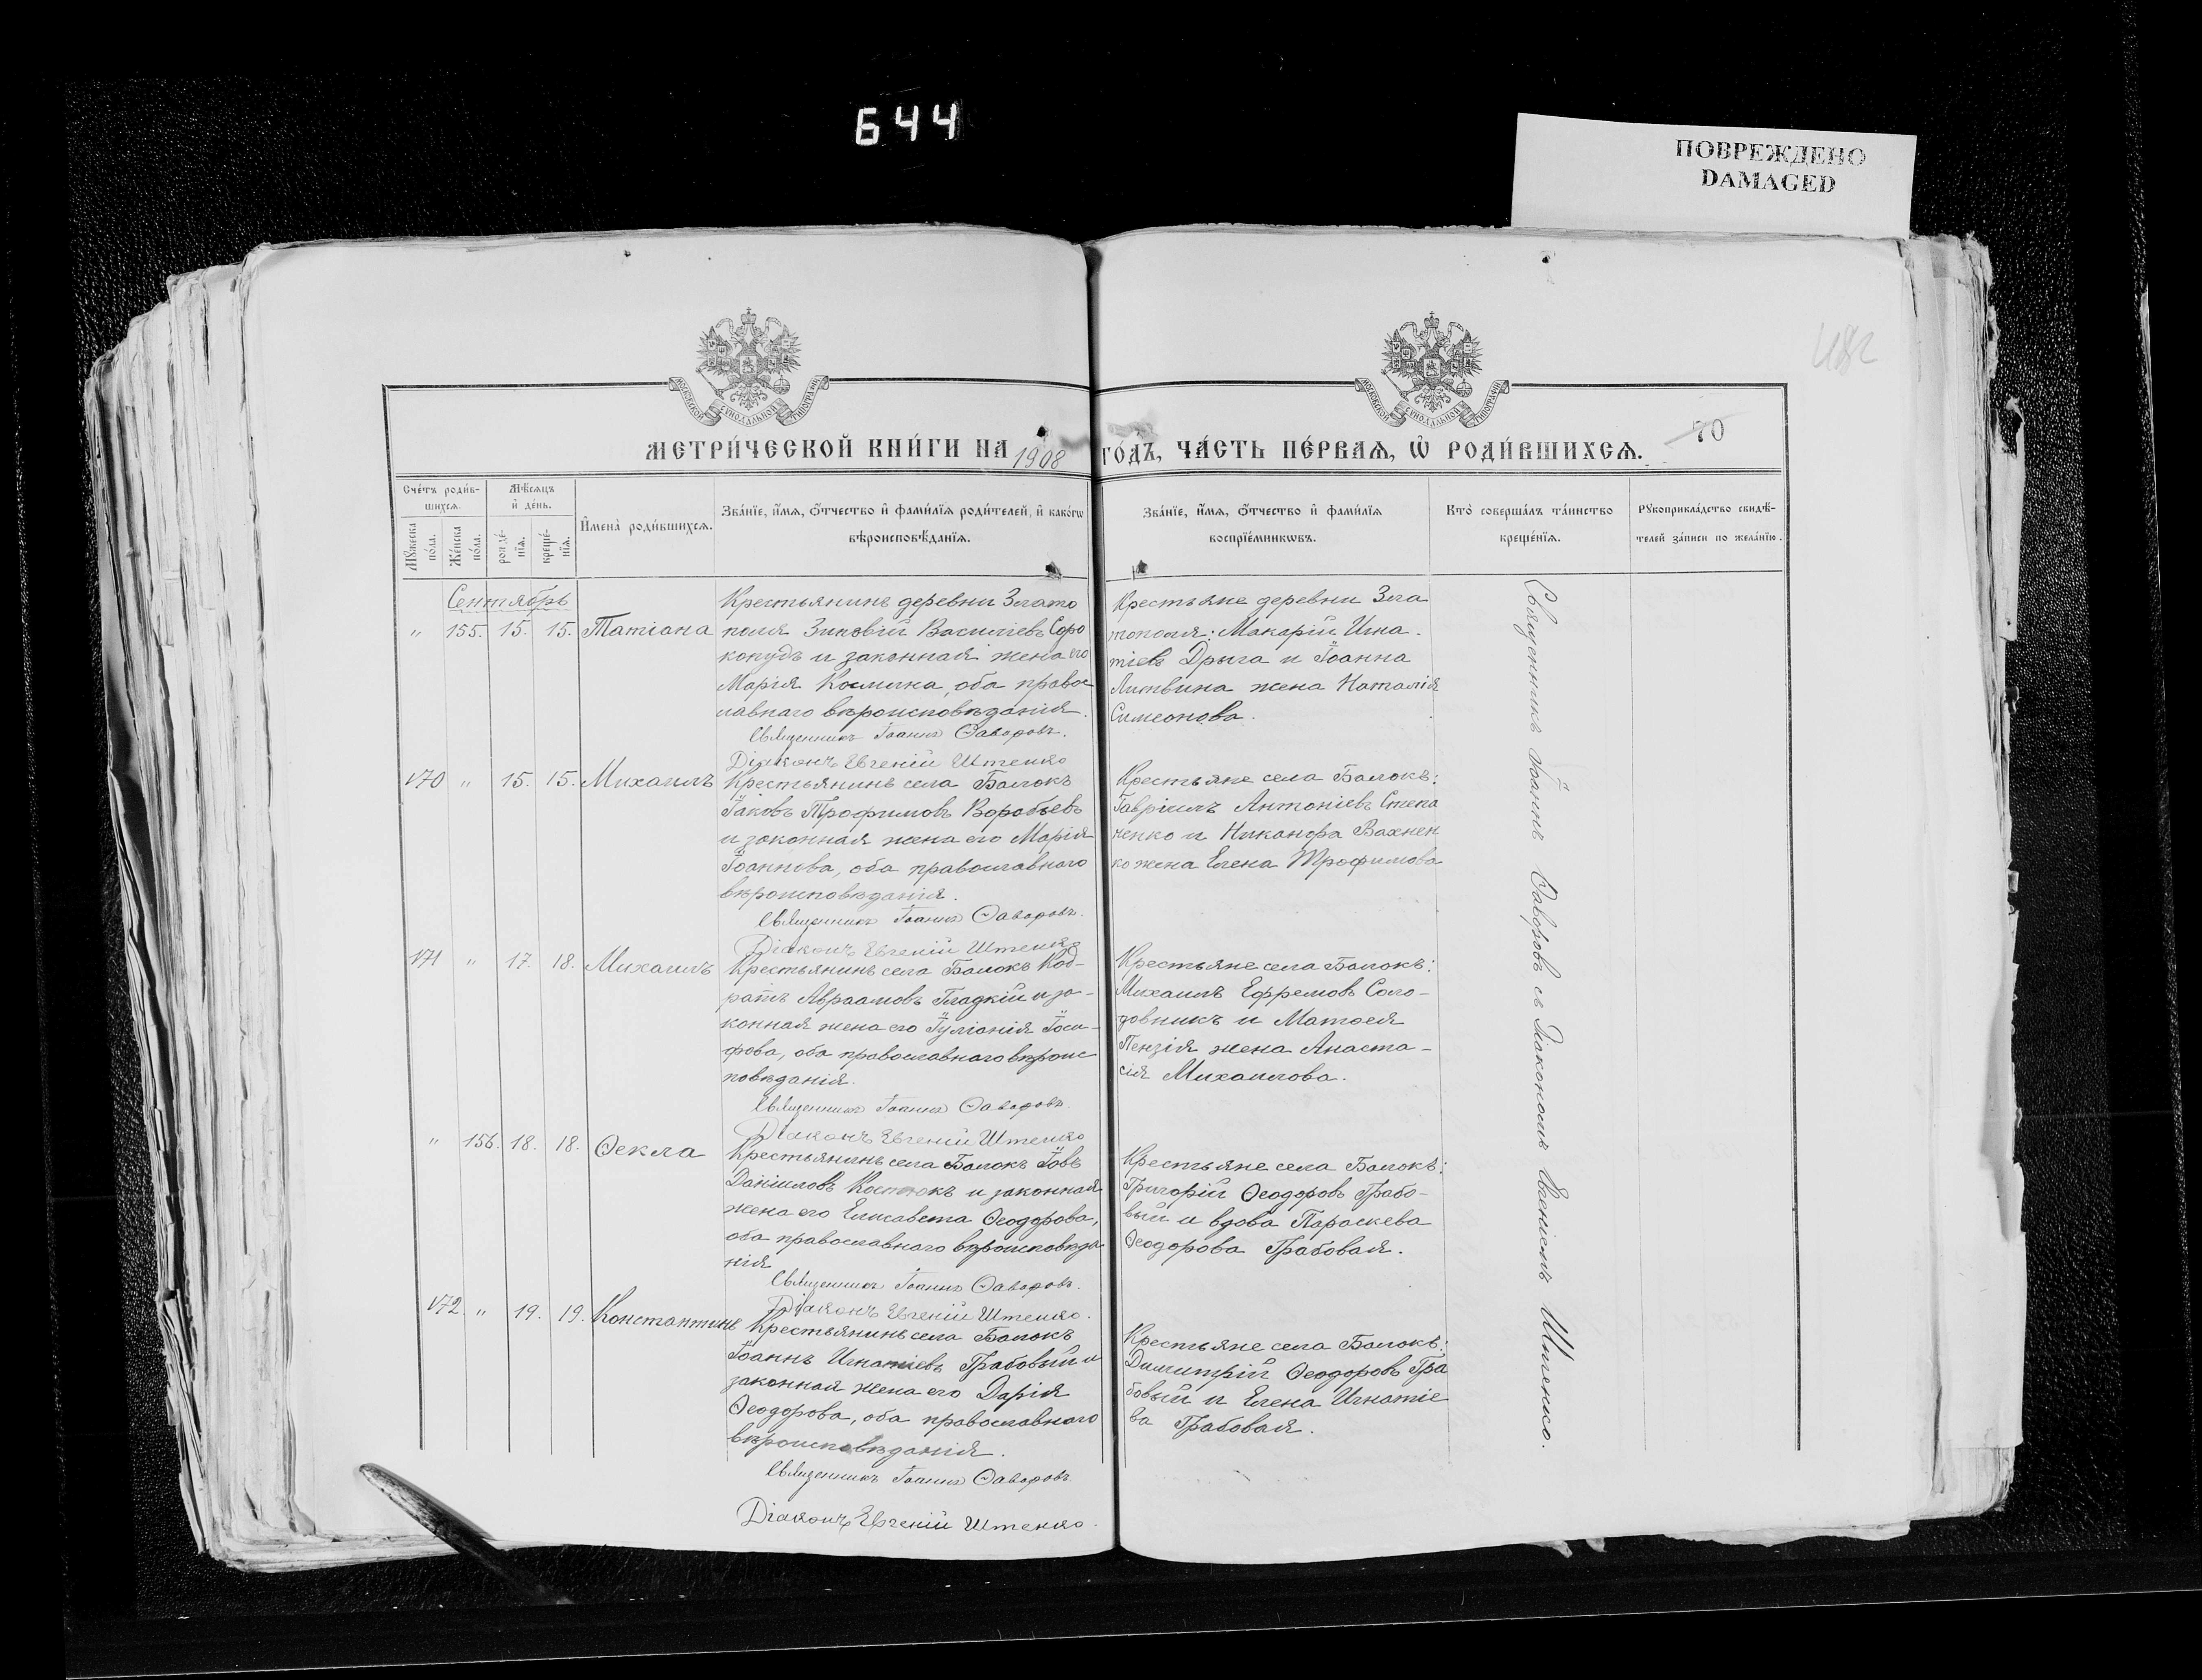 644
ПОВРЕЖДЕНО
DAMAGED
МОСКОВСКОЙ СѴНОДАЛЬНОЙ ТИПОГРАФІИ
МОСКОВСКОЙ СѴНОДАЛЬНОЙ ТИПОГРАФІИ
МЕТРИ́ЧЕСКОЙ КНИ́ГИ НА 1908 ГО́ДЪ, ЧА́СТЬ ПЕ́РВАѦ, Ѡ҆ РОДИ́ВШИХСѦ.
70
Сче́тъ роди́в-
шихсѧ.
Мꙋ́жеска
по́ла.
Же́нска
по́ла.
Мѣ́сѧцъ
и҆ де́нь.
рожде́-
нїѧ.
креще́-
нїѧ.
И҆мена̀ роди́вшихсѧ.
Зва́нїе, и҆́мѧ, ѻ҆́тчество и҆ фами́лїѧ роди́телей, и҆ како́гѡ
вѣроисповѣ́данїѧ.
Зва́нїе, и҆́мѧ, ѻ҆́тчество и҆ фами́лїѧ
воспрїе́мникѡвъ.
Кто̀ соверша́лъ та́инство
креще́нїѧ.
Рꙋкоприкла́дство свидѣ́-
телей за́писи по жела́нїю.
Сентябрь
" 155. 15. 15. Татіана
Крестьянинъ деревни Злато
поля Зиновій Василіевъ Соро
копудъ и законная жена его
Марія Космина, оба правос
лавнаго вѣроисповѣданія.
Священникъ Іоаннъ Ѳаворовъ.
Діаконъ Евгеній Штенко
Крестьяне деревни Зла
тополя: Макарій Игна
тіевъ Дрыга и Іоанна
Литвина жена Наталія
Симеонова.
170 " 15. 15. Михаилъ
Крестьянинъ села Балокъ
Іаковъ Трофимовъ Воробьевъ
и законная жена его Марія
Іоаннова, оба православнаго
вѣроисповѣданія.
Священникъ Іоаннъ Ѳаворовъ.
Діаконъ Евгеній Штенко
Крестьяне села Балокъ:
Гавріилъ Антоніевъ Степа
ненко и Никанора Вахнен
ко жена Елена Трофимова
171 " 17. 18. Михаилъ
Крестьянинъ села Балокъ Код-
ратъ Авраамовъ Гладкій и за-
конная жена его Іуліанія Іоси-
фова, оба православнаго вѣроис
повѣданія.
Священникъ Іоаннъ Ѳаворовъ.
Діаконъ Евгеній Штенко
Крестьяне села Балокъ:
Михаилъ Ефремовъ Соло-
довникъ и Матѳея
Пензія жена Анаста-
сія Михаилова.
" 156. 18. 18. Ѳекла
Крестьянинъ села Балокъ Іовъ
Даніиловъ Костюкъ и законная
жена его Елисавета Ѳеодорова,
оба православнаго вѣроисповѣда
нія
Священникъ Іоаннъ Ѳаворовъ.
Діаконъ Евгеній Штенко.
Крестьяне села Балокъ:
Григорій Ѳеодоровъ Грабо-
вый и вдова Параскева
Ѳеодорова Грабовая.
172. " 19. 19. Константинъ
Крестьянинъ села Балокъ
Іоаннъ Игнатіевъ Грабовый и
законная жена его Дарія
Ѳеодорова, оба православнаго
вѣроисповѣданія.
Священникъ Іоаннъ Ѳаворовъ
Діаконъ Евгеній Штенко.
Крестьяне села Балокъ:
Димитрій Ѳеодоровъ Гра
бовый и Елена Игнатіе
ва Грабовая.
Священникъ Іоаннъ Ѳаворовъ съ Діакономъ Евгеніемъ Штенко.